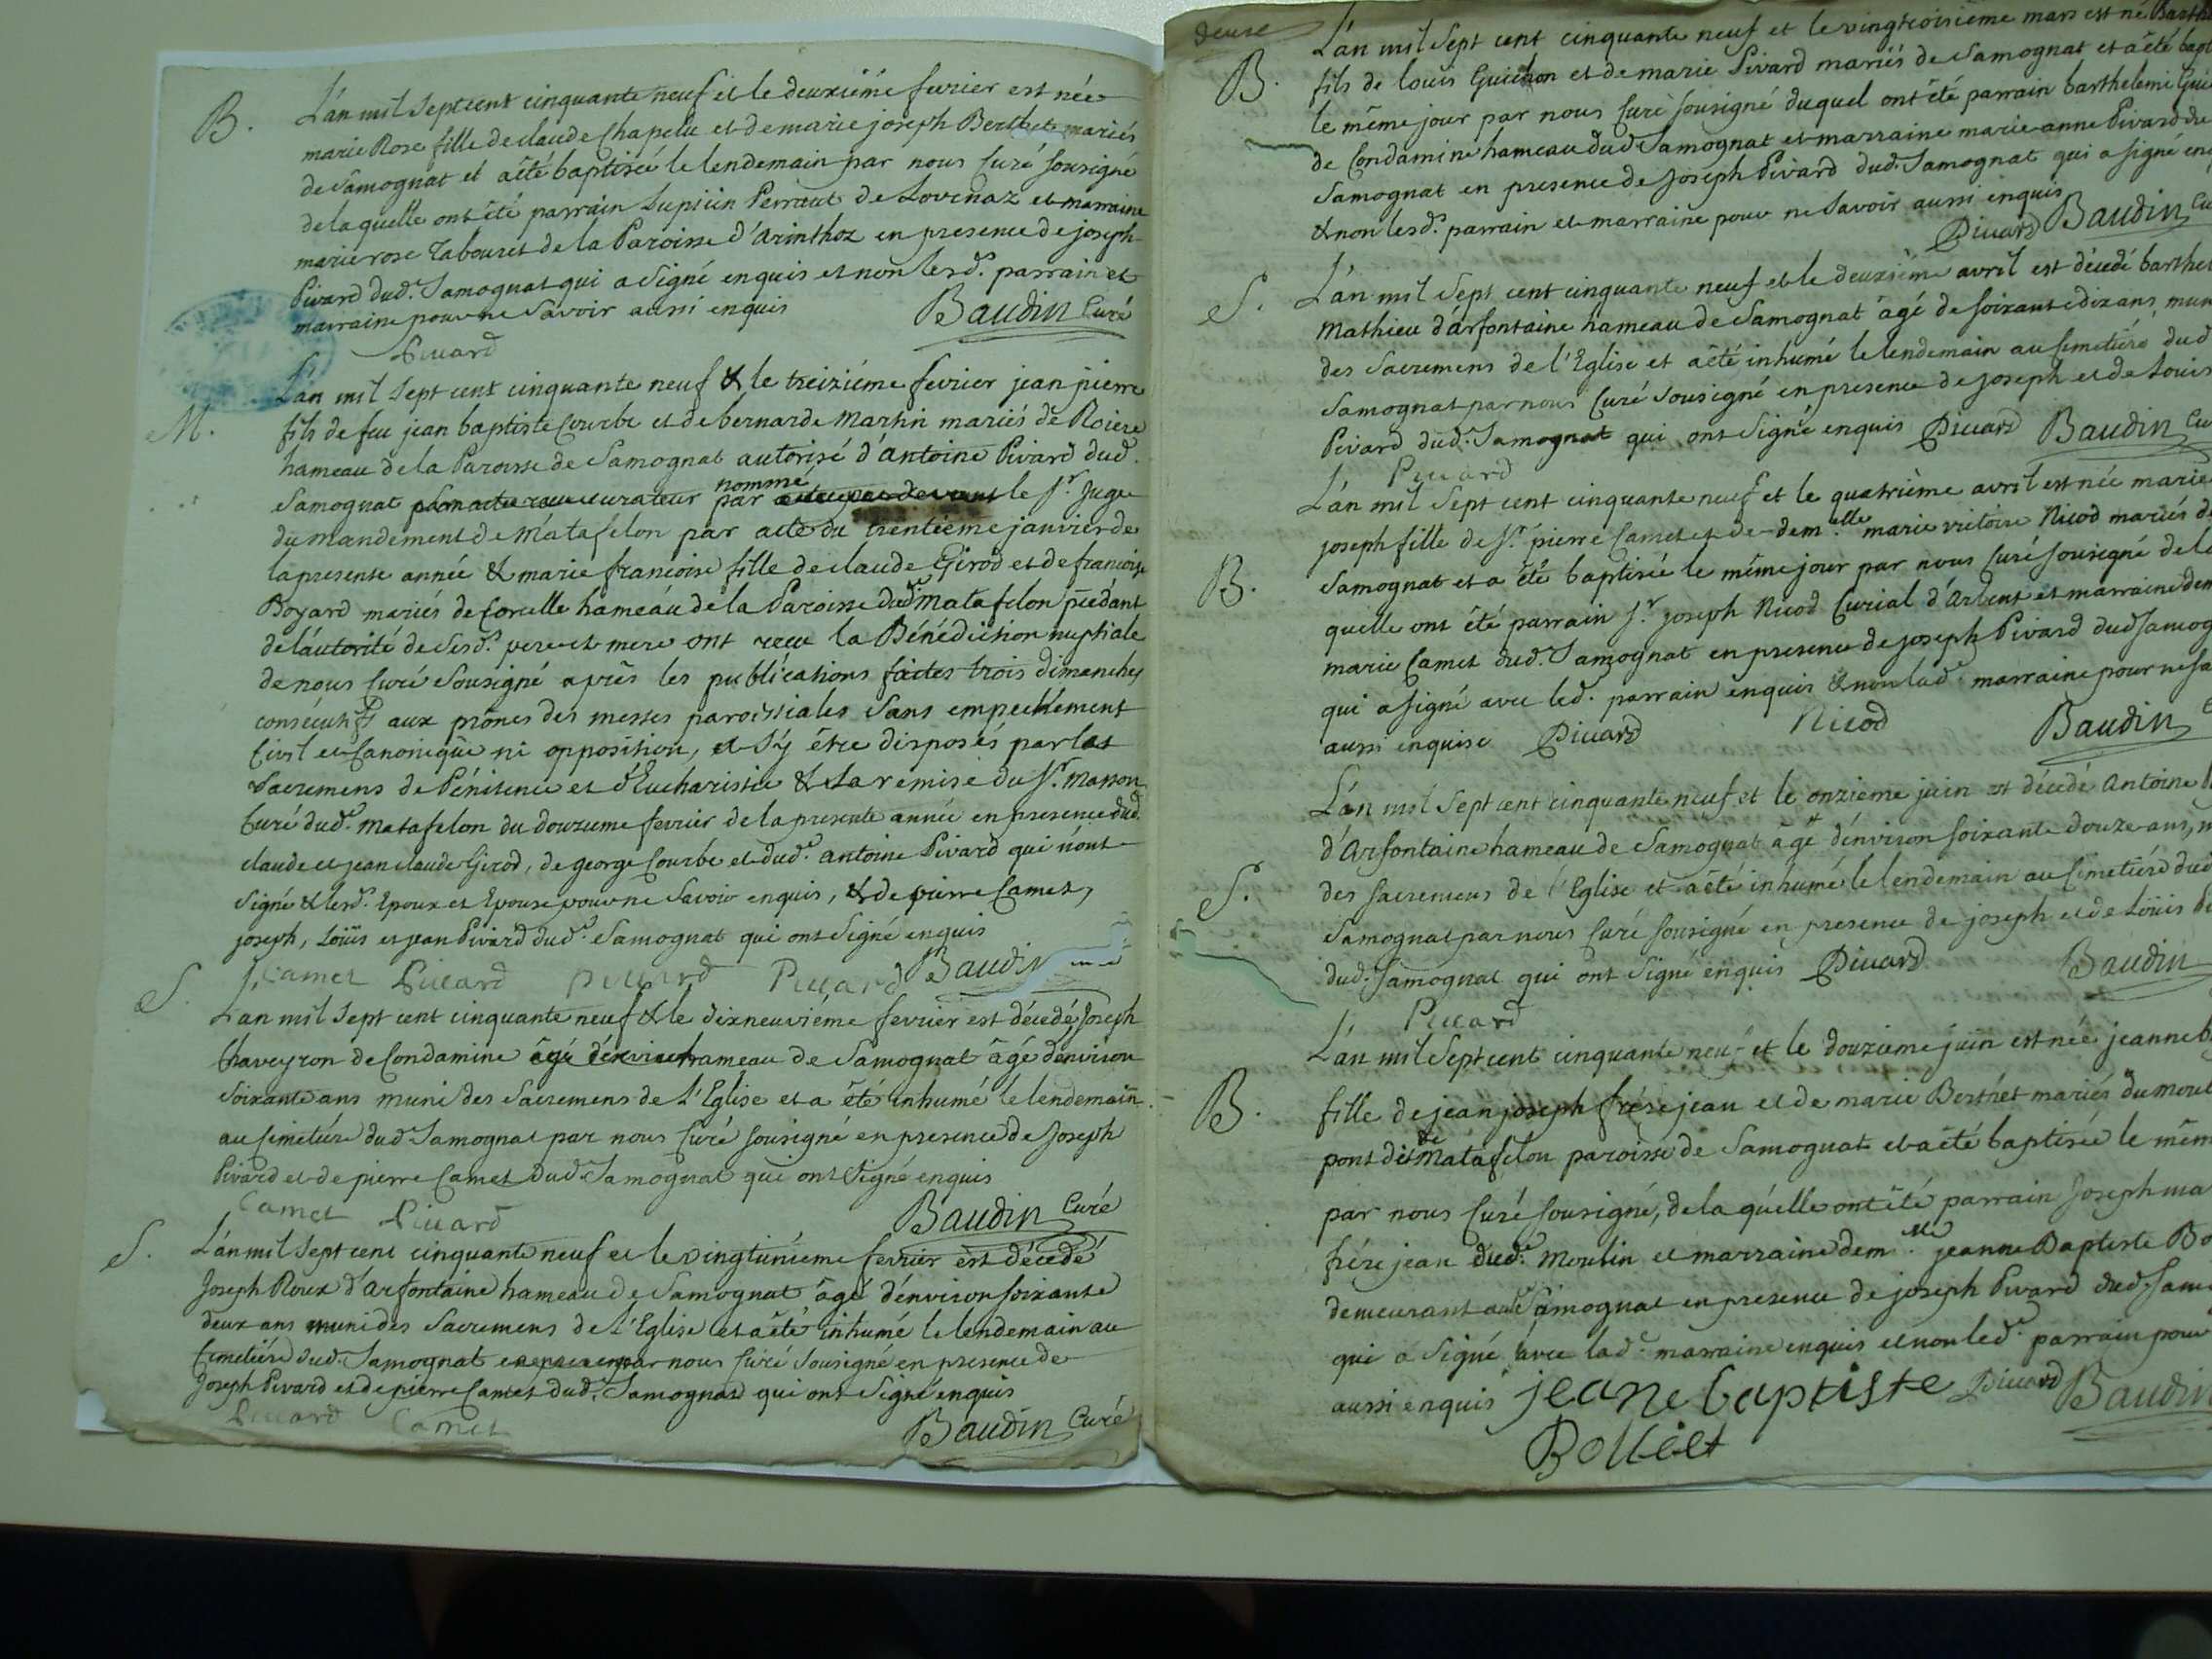 B.
L'án mil Sept cent cinquante neuf et le deuxiéme fevrier est née
marie Rose fille de claude Chapelu et de marie joseph Berthet mariés
de Samognat et a été baptisée le lendemain par nous Curé sousigné
de la quelle ont été parrain Lupicin Perraut de Lovenaz et marraine
marie rose Tabouret de la Paroisse d'Arinthoz en presence de joseph
Pivard dud. Samognat qui a signé enquis et non lesd. parrain et
marraine pour ne Savoir aussi enquis Baudin Curé
Pivard
M.
L'án mil Sept cent cinquante neuf & le treiziéme fevrier jean pierre
fils de feu jean baptiste Courbe et de bernarde Martin mariés de Roiere
hameau de la Paroisse de Samognat autorisé d'Antoine Pivard dud.
Samognat curateur nommé par le Sr. Juge
du mandement de Matafelon par acte du trentiéme janvier de
la presente année & marie francoise fille de claude Girod et de francoise
Boyard mariés de Corcelle hameáu de la Paroisse dud. Matafelon
de l'áutorité de Sesd. pere et mere ont recu la Bénédiction nuptiale
de nous Curé Sousigné aprés les publications faites trois dimanches
consécutifs aux prônes des messes paroissiales Sans empechement
Civil et Canonique ni opposition, et s'y être disposés par les
Sacremens de Pénitence et d'Eucharistie & La remise du Sr. Masson
Curé dud. Matafelon du douzieme fevrier de la presente année en presence dud.
claude et jean claude Girod, de george Courbe et dud. antoine Pivard qui n'ont
Signé & lesd. Epoux et Epouse pour ne Savoir enquis, & de pierre Camet,
joseph, Loüis et jean Pivard dud. Samognat qui ont Signé enquis
Camet Pivard Pivard Pivard Baudin
S.
L'an mil Sept cent cinquante neuf & le dixneuviéme fevrier est décedé Joseph
Chaveyron de Condamine hameau de Samognat âgé d'environ
Soixante ans muni des Sacremens de L'Eglise et a été inhumé le lendemain
au Cimetiére dud. Samognat par nous Curé sousigné en presence de Joseph
Pivard et de pierre Camet dud. Samognat qui ont Signé enquis
Camet Pivard Baudin Curé
S.
L'án mil Sept cent cinquante neuf et le vingtuniéme fevrier est décedé
Joseph Roux d'Arfontaine hameau de Samognat âgé d'environ soixante
deux ans muni des Sacremens de L'Eglise et a été inhumé le lendemain au
Cimetiére dud. Samognat par nous Curé Sousigné en presence de
Joseph Pivard et de pierre Camet dud. Samognat qui ont Signé enquis
Pivard Camet Baudin Curé
L'án mil Sept cent cinquante neuf et le vingtroisième mars est né
B.
fils de louis Guichon et de marie Pivard mariés de Samognat et a été
le même jour par nous Curé sousigné duquel ont été parrain barthelemi
de Condamine hameau dud. Samognat et marraine marie anne Pivard du
Samognat en presence de Joseph Pivard dud. Samognat qui a signé
& non lesd. parrain et marraine pour ne Savoir aussi enquis
Pivard Baudin
S.
L'án mil Sept cent cinquante neuf et le deuxième avril est décedé
Mathieu d'Arfontaine hameau de Samognat âgé de soixante dix ans,
des Sacremens de l'Eglise et a été inhumé le lendemain au Cimetiére dud
Samognat par nous Curé Sousigné en presence de joseph et de Louis
Pivard dud. Samognat qui ont Signé enquis Pivard Baudin
Pivard
L'án mil Sept cent cinquante neuf et le quatrième avril est née marie
joseph fille de Sr. pierre Camet et de demelle marie victoire Nicod mariés
B.
Samognat et a été baptisée le même jour par nous Curé sousigné de la
quelle ont été parrain Sr. joseph Nicod Curial d'Arbent et marraine
marie Camet dud. Samognat en presence de joseph Pivard dud
qui a signé avec led. parrain enquis & non lad. marraine pour ne
aussi enquise Pivard Nicod Baudin
L'án mil Sept cent cinquante neuf et le onzieme juin est décedé Antoine
d'Arfontaine hameau de Samognat âgé d'environ soixante douze ans,
S.
des sacremens de l'Eglise et a été inhumé le lendemain au Cimetiére dud
Samognat par nous Curé sousigné en presence de joseph et de Loüis
dud. Samognat qui ont Signé enquis Pivard Baudin
Pivard
L'án mil Sept cent cinquante neuf et le douzieme juin est née
B.
fille de jean joseph frérejean et de marie Berthet mariés du
pont de Matafelon paroisse de Samognat et a été baptisée le
par nous Curé sousigné, de la quelle ont été parrain Joseph
frérejean dud. Moulin et marraine demlle jeanne Baptiste
demeurant Samognat en presence de joseph Pivard dud
qui a Signé avec lad. marraine enquis et non led. parrain pour
aussi enquis jeane baptiste Pivard Baudin
Bolliet